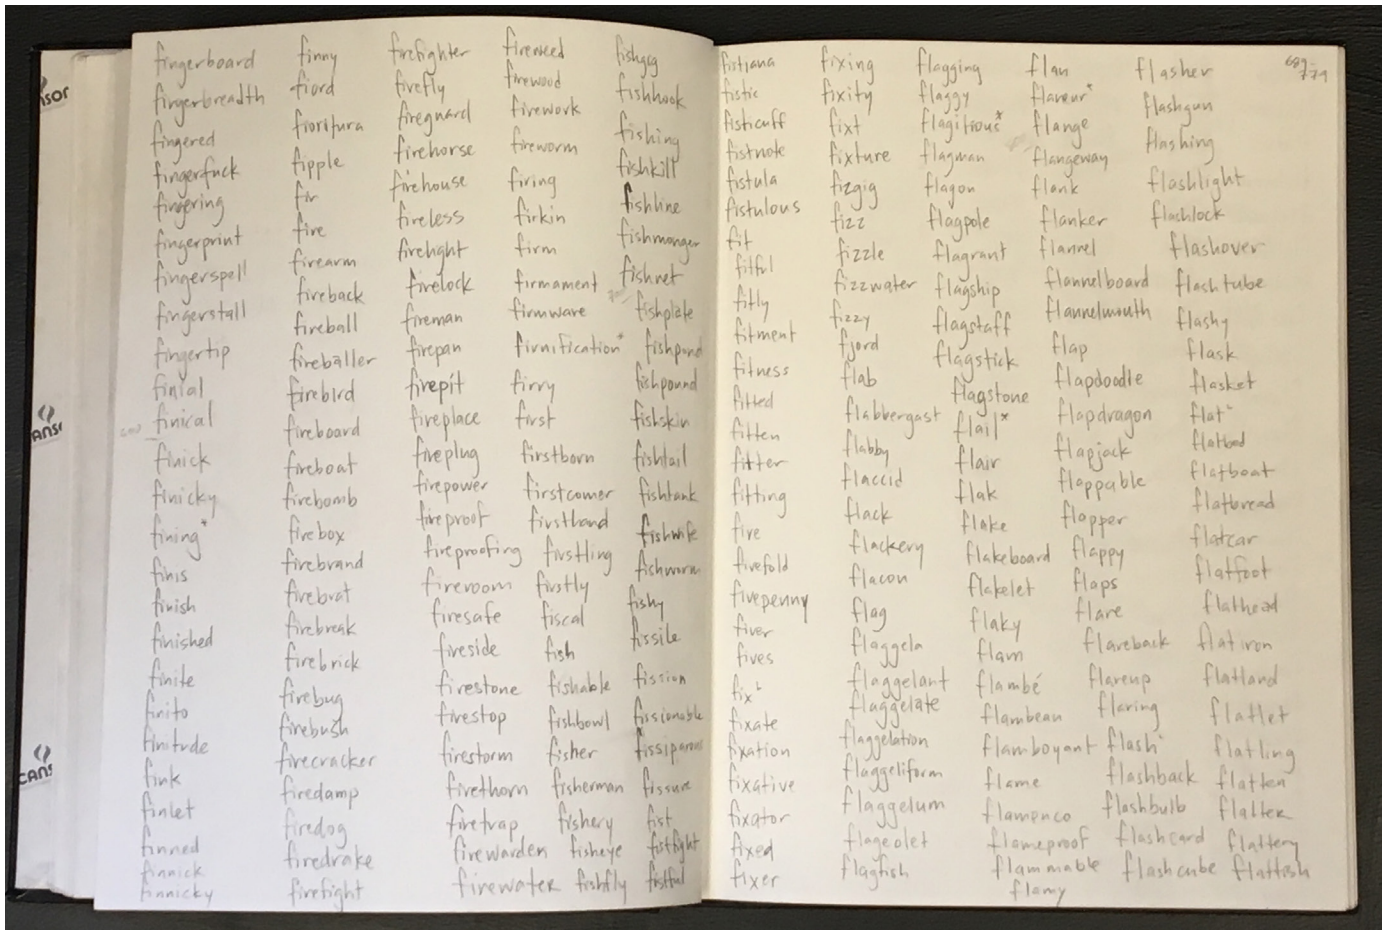 fingerboard
fingerbreadth
fingered
fingerfuck
fingering
fingerprint
fingerspell
fingerstall
fingertip
finial
finical
finick
finicky
fining*
finis
finish
finished
finite
finito
finitude
fink
finlet
finned
finnick
finnicky
finny
fiord
fioritura
fipple
fir
fire
firearm
fireback
fireball
fireballer
firebird
fireboard
fireboat
firebomb
firebox
firebrand
firebrat
firebreak
firebrick
firebug
firebush
firecracker
firedamp
firedog
firedrake
firefight
firefighter
firefly
fireguard
firehorse
firehouse
fireless
firelight
firelock
fireman
firepan
firepit
fireplace
fireplug
firepower
fireproof
fireproofing
fireroom
firesafe
fireside
firestone
firestop
firestorm
firethorn
firetrap
firewarden
firewater
fireweed
firewood
firework
fireworm
firing
firkin
firm
firmament
firmware
firnification*
firry
first
firstborn
firstcomer
firsthand
firstling
firstly
fiscal
fish
fishable
fishbowl
fisher
fisherman
fishery
fisheye
fishfly
fishgig
fishhook
fishing
fishkill
fishline
fishmonger
fishnet
fishplate
fishpond
fishpound
fishskin
fishtail
fishtank
fishwife
fishworm
fishy
fissile
fission
fissionable
fissiparous
fissure
fist
fistfight
fistful
CANSON
CANSON
CANSON
fistiana
fistic
fisticuff
fistnote
fistula
fistulous
fit
fitful
fitly
fitment
fitness
fitted
fitten
fitter
fitting
five
fivefold
fivepenny
fiver
fives
fix
fixate
fixation
fixative
fixator
fixed
fixer
fixing
fixity
fixt
fixture
fizgig
fizz
fizzle
fizzwater
fizzy
fjord
flab
flabbergast
flabby
flaccid
flack
flackery
flacon
flag
flaggela
flaggelant
flaggelate
flaggelation
flaggeliform
flaggelum
flageolet
flagfish
flagging
flaggy
flagitious*
flagman
flagon
flagpole
flagrant
flagship
flagstaff
flagstick
flagstone
flail*
flair
flak
flake
flakeboard
flakelet
flaky
flam
flambé
flambeau
flamboyant
flame
flamenco
flameproof
flammable
flamy
flan
flaneur*
flange
flangeway
flank
flanker
flannel
flannelboard
flannelmouth
flap
flapdoodle
flapdragon
flapjack
flappable
flapper
flappy
flaps
flare
flareback
flareup
flaring
flash
flashback
flashbulb
flashcard
flashcube
flasher
flashgun
flashing
flashlight
flashlock
flashover
flashtube
flashy
flask
flasket
flat
flatbed
flatboat
flatbread
flatcar
flatfoot
flathead
flatiron
flatland
flatlet
flatling
flatten
flatter
flattery
flattish